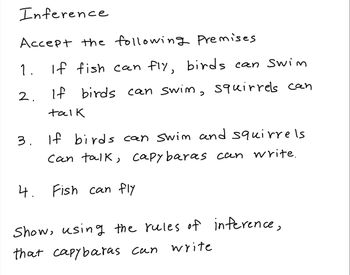 Inference
Accept the following Premises
1. If fish can fly, birds can swim
2. If birds can swim, squirrels can
talk
3. If birds can swim and squirrels
can talk, capybaras can write.
4. Fish can fly
Show, using the rules of inference,
that capybaras can write